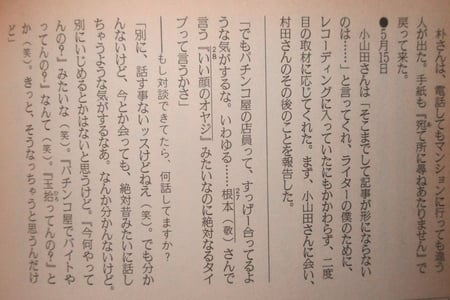 朴さんは、電話してもマンションに行っても違う
人が出た。手紙も『宛て所に尋ねあたりません』で
戻って来た。
●5月15日
小山田さんは「そこまでして記事が形にならない
のは……」と言ってくれ、ライターの僕のために、
レコーディングに入っていたにもかかわらず、二度
目の取材に応じてくれた。まず、小山田さんに会い、
村田さんのその後のことを報告した。
「でもパチンコ屋の店員って、すっげー合ってるよ
うな気がするな。いわゆる……根本（敬）さんで
言う『いい顔のオヤジ』みたいなのに絶対なるタイ
プって言うかさ」
もし対談できてたら、何話してますか？
「別に、話す事ないッスけどねえ（笑）。でも分か
んないけど、今とか会っても、絶対昔みたいに話し
ちゃうような気がするなあ。なんか分かんないけど。
別にいじめるとかはないと思うけど。『今何やって
んの？』みたいな（笑）。『パチンコ屋でバイトやっ
てんの？』なんて（笑）。『玉拾ってんの？』と
か（笑）。きっと、そうなっちゃうと思うんだけ
ど」